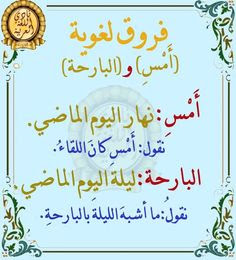 فروق لغوية
(أَمْسِ) و(البارحة)
أَمْسِ: نهار اليوم الماضي.
نقول: أَمْسِ كانَ اللقاءُ.
البارحة: ليلة اليوم الماضي.
نقولُ: ما أشبهَ الليلةَ بالبارحةِ.